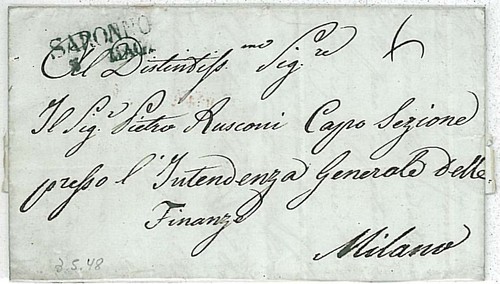 SARONNO
8 MAG.
Al Distintiss.mo Sig.re
Il Sig.r Pietro Rusconi Capo Sezione
presso l'Intendenza Generale delle
Finanze
Milano
5.48